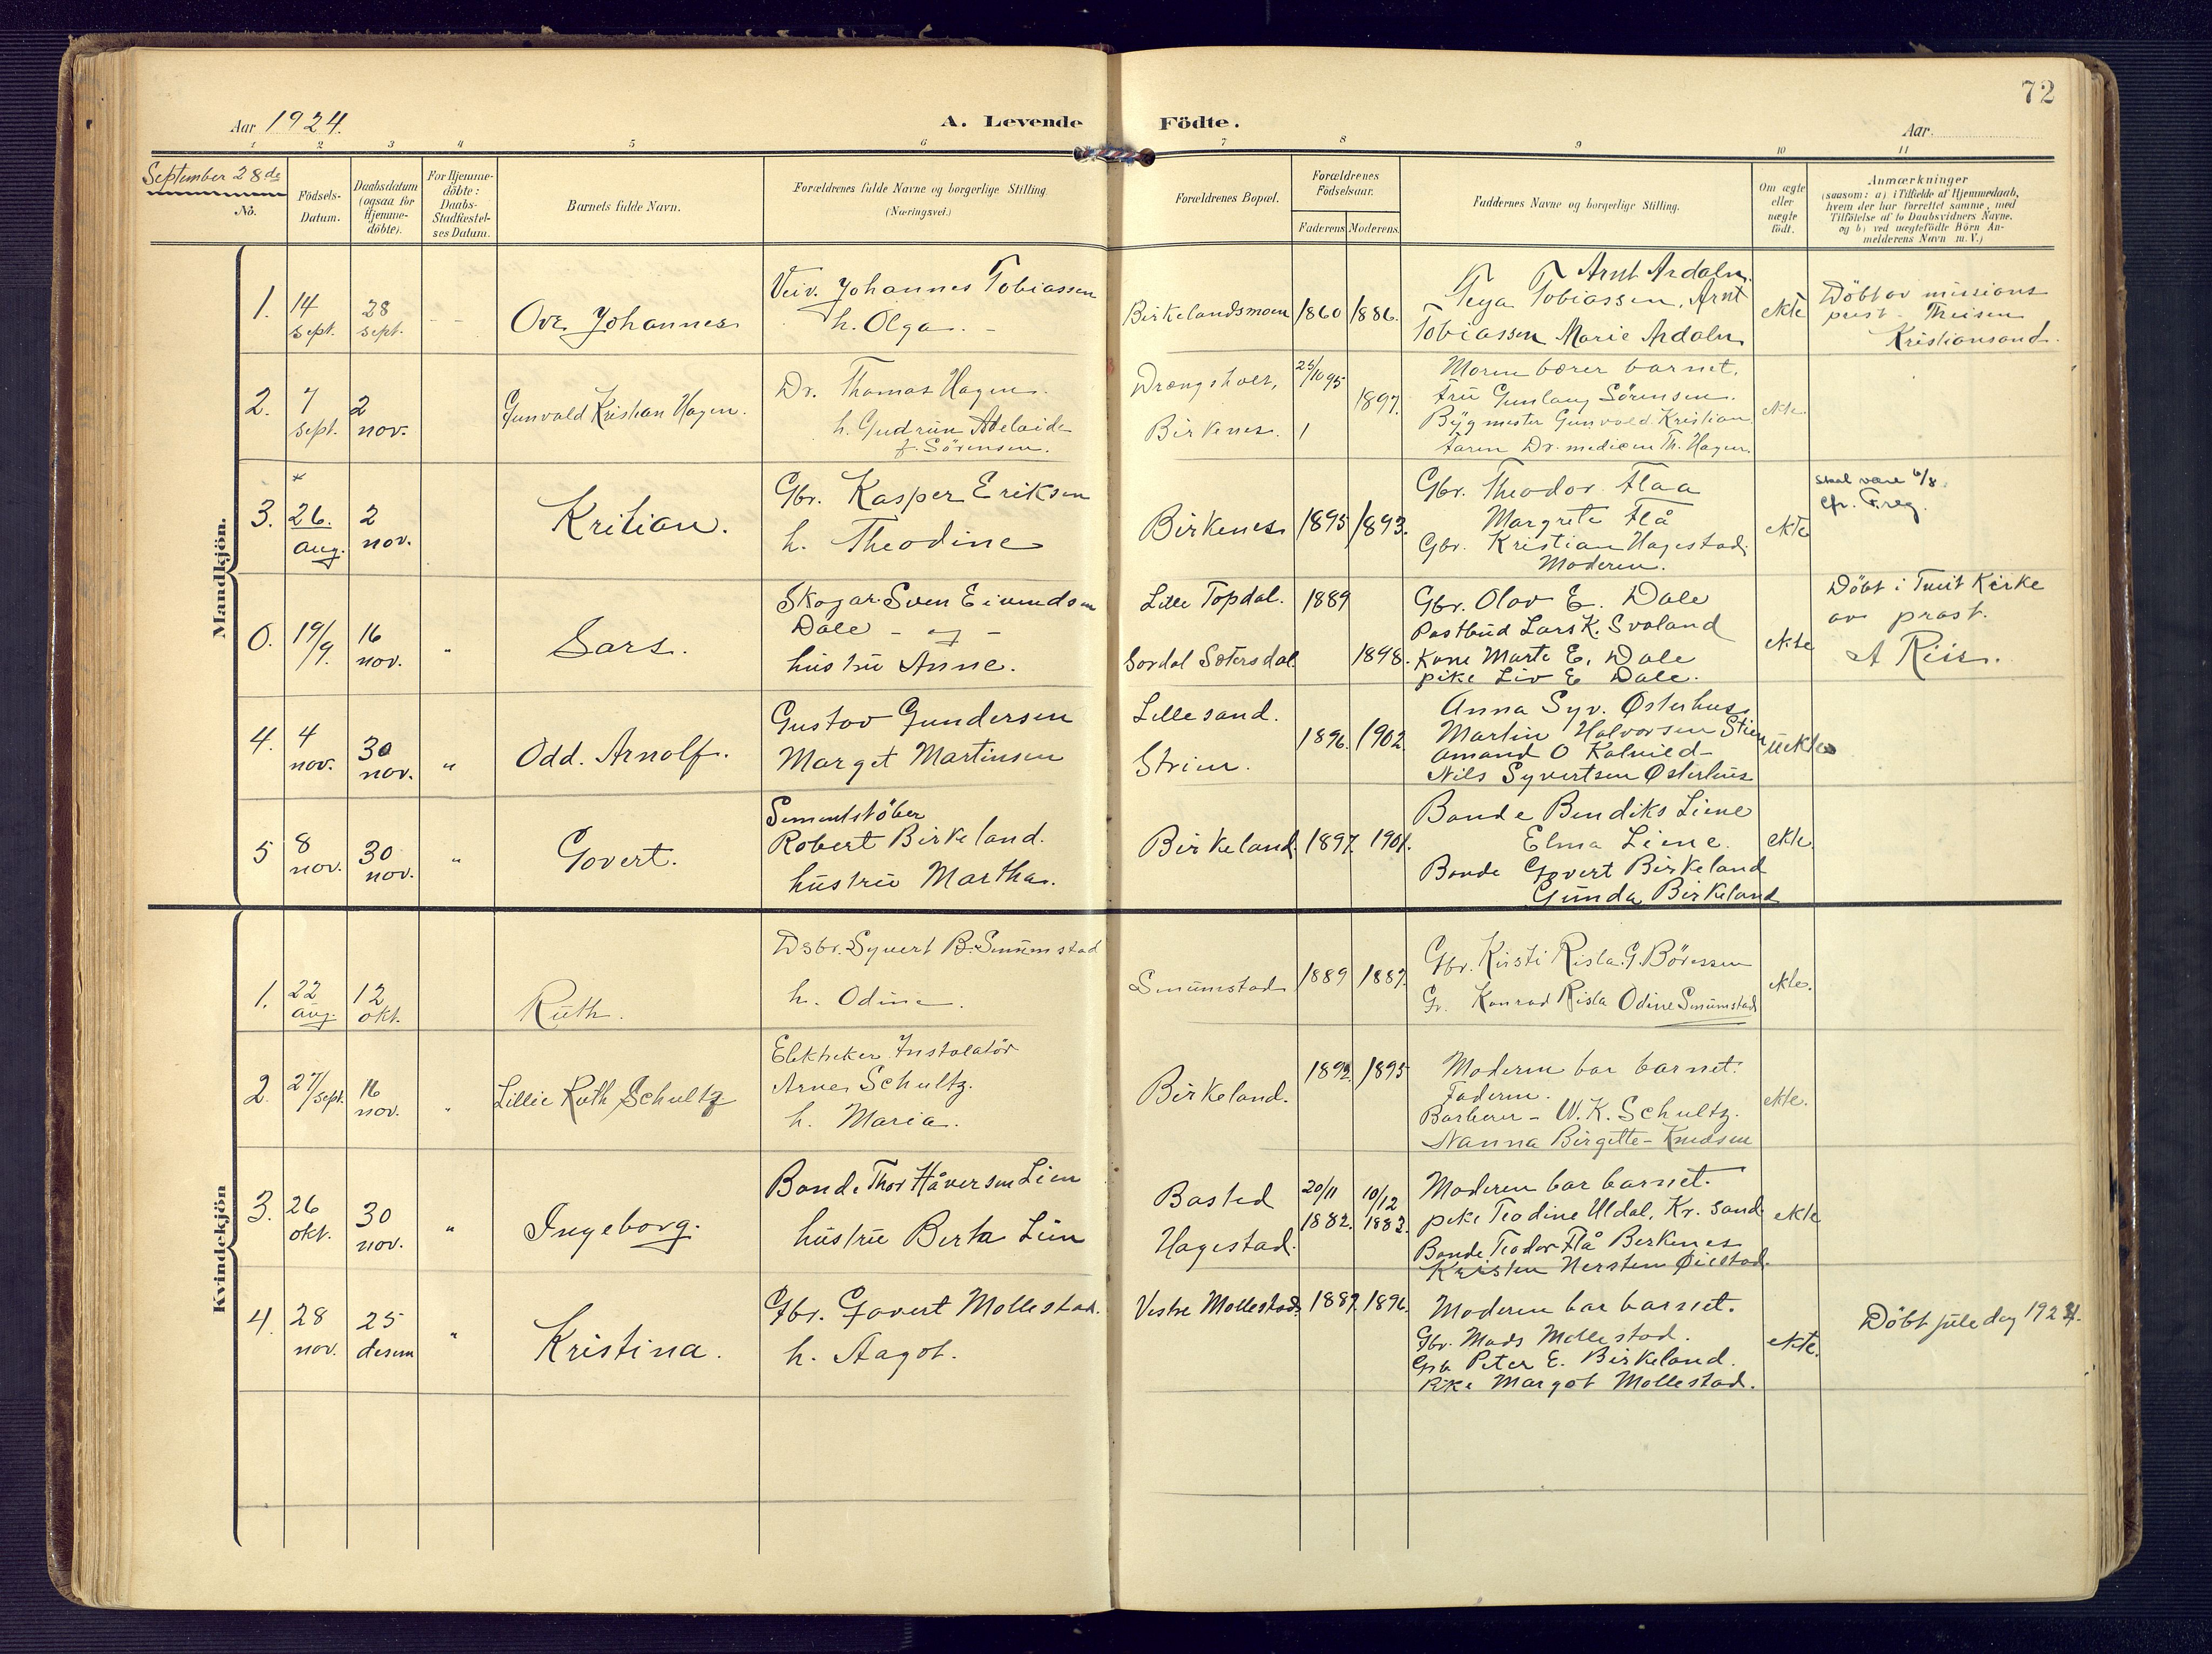 72
Aar 1924.
A. Levende Födte.
Aar.
1 2 3 4 5 6 7 8 9 10 11
September 28de
No.
Födsels-
Datum.
Daabsdatum
(ogsaa for
Hjemme-
döbte).
For Hjemme-
döbte:
Daabs-
Stadfæstel-
ses Datum.
Barnets fulde Navn.
Forældrenes fulde Navne og borgerlige Stilling.
(Næringsvei.)
Forældrenes Bopæl.
Forældrenes
Födselsaar.
Faderens. Moderens.
Faddernes Navne og borgerlige Stilling.
Om ægte
eller
uægte
födt.
Anmærkninger
(saasom: a) i Tilfælde af Hjemmedaab,
hvem der har forrettet samme, med
Tilföielse af to Daabsvidners Navne,
og b) ved uægtefödte Börn An-
melderens Navn m. V.)
Mandkjön.
1.
14
sept.
28
sept.
Ove Johannes
Veiv. Johannes Tobiassen
h. Olga.
Birkelandsmoen
1860
1886.
Arnt Ardaln.
Teya Tobiassen, Arnt
Tobiassen Marie Ardaln
ekte
Döbt av missions
prest Theisen
Kristiansand.
2.
7
sept.
2
nov.
Gunvald Kristian Hagen.
Dr. Thomas Hagen.
h. Gudrun Adelaide
f. Sörensen.
Drængsholt,
Birkenes.
25/10 95
1897.
Moren bærer barnet.
Fru Gunlaug Sörensen.
Bygmester Gunvald Kristian
faren Dr. medicin Th. Hagen.
ekte.
3.
26.
aug.
2
nov.
Kritian.
Gbr. Kasper Eriksen
h. Theodine
Birkenes
1895
1893.
Gbr. Theodor Flaa
Margrete Flå
Gbr. Kristian Hagestad.
Moderen.
ekte
skal være 6/8
cfr. F.reg.
0.
19/9.
16
nov.
"
Lars.
Skogar. Sven Eivindsen
Dale - og -
hustru Anne.
Lille Topdal.
Sordal Sætersdal
1889
1898.
Gbr. Olav E. Dale
Postbud Lars K. Svaland
Kone Marte E. Dale
pike Liv E Dale.
ekte
Döbt i Tveit Kirke
av prost.
A Riis.
4.
4
nov.
30
nov.
"
Odd. Arnolf.
Gustav Gundersen
Marget Martinsen
Lillesand.
Strien.
1896.
1902
Anna Syv. Østerhus
Martin Halvorsen Stien
Amand O Kalvild
Nils Syvertsen Østerhus
uekte
5
8
nov.
30
nov.
"
Govert.
Sementstöber
Robert Birkeland.
hustru Martha.
Birkeland.
1897.
1901.
Bonde Bendiks Liene
Elma Liene.
Bonde Govert Birkeland
Gunda Birkeland
ekte.
Kvindekjön
1.
22
aug.
12
okt.
Ruth.
Dsbr. Syvert B. Smumstad
h. Odine.
Smumstad
1889
1887.
Gbr. Kristi Risla. G. Böressen
Gr. Konrad Risla Odine Smumstad
ekte.
2.
27/sept.
16
nov.
"
Lillie Ruth Schultz
Elektriker Instalatör
Arne Schultz.
h. Maria.
Birkeland.
1892.
1895
Moderen bar barnet.
Faderen.
Barberer - W. K. Schultz.
Nanna Birgitte - Knudsen
ekte.
3.
26
okt.
30
nov.
"
Ingeborg.
Bonde Thor Håversen Lien
hustru Berta Lien
Basted
Hagestad.
20/11
1882.
10/12
1883.
Moderen bar barnet.
pike Teodine Uldal, Kr. sand
Bonde Teodor Flå Berkenes
Kristen Nersten Øiestad.
ekte
4.
28
nov.
25
desem
"
Kristina.
Gbr. Govert Mollestad.
h. Aagot.
Vestre Mollestad.
1887.
1896.
Moderen bar barnet.
Gbr. Mads Mollestad.
Gbr Peter E. Birkeland.
Pike Margot Mollestad.
ekte.
Döbt juledag 1924.